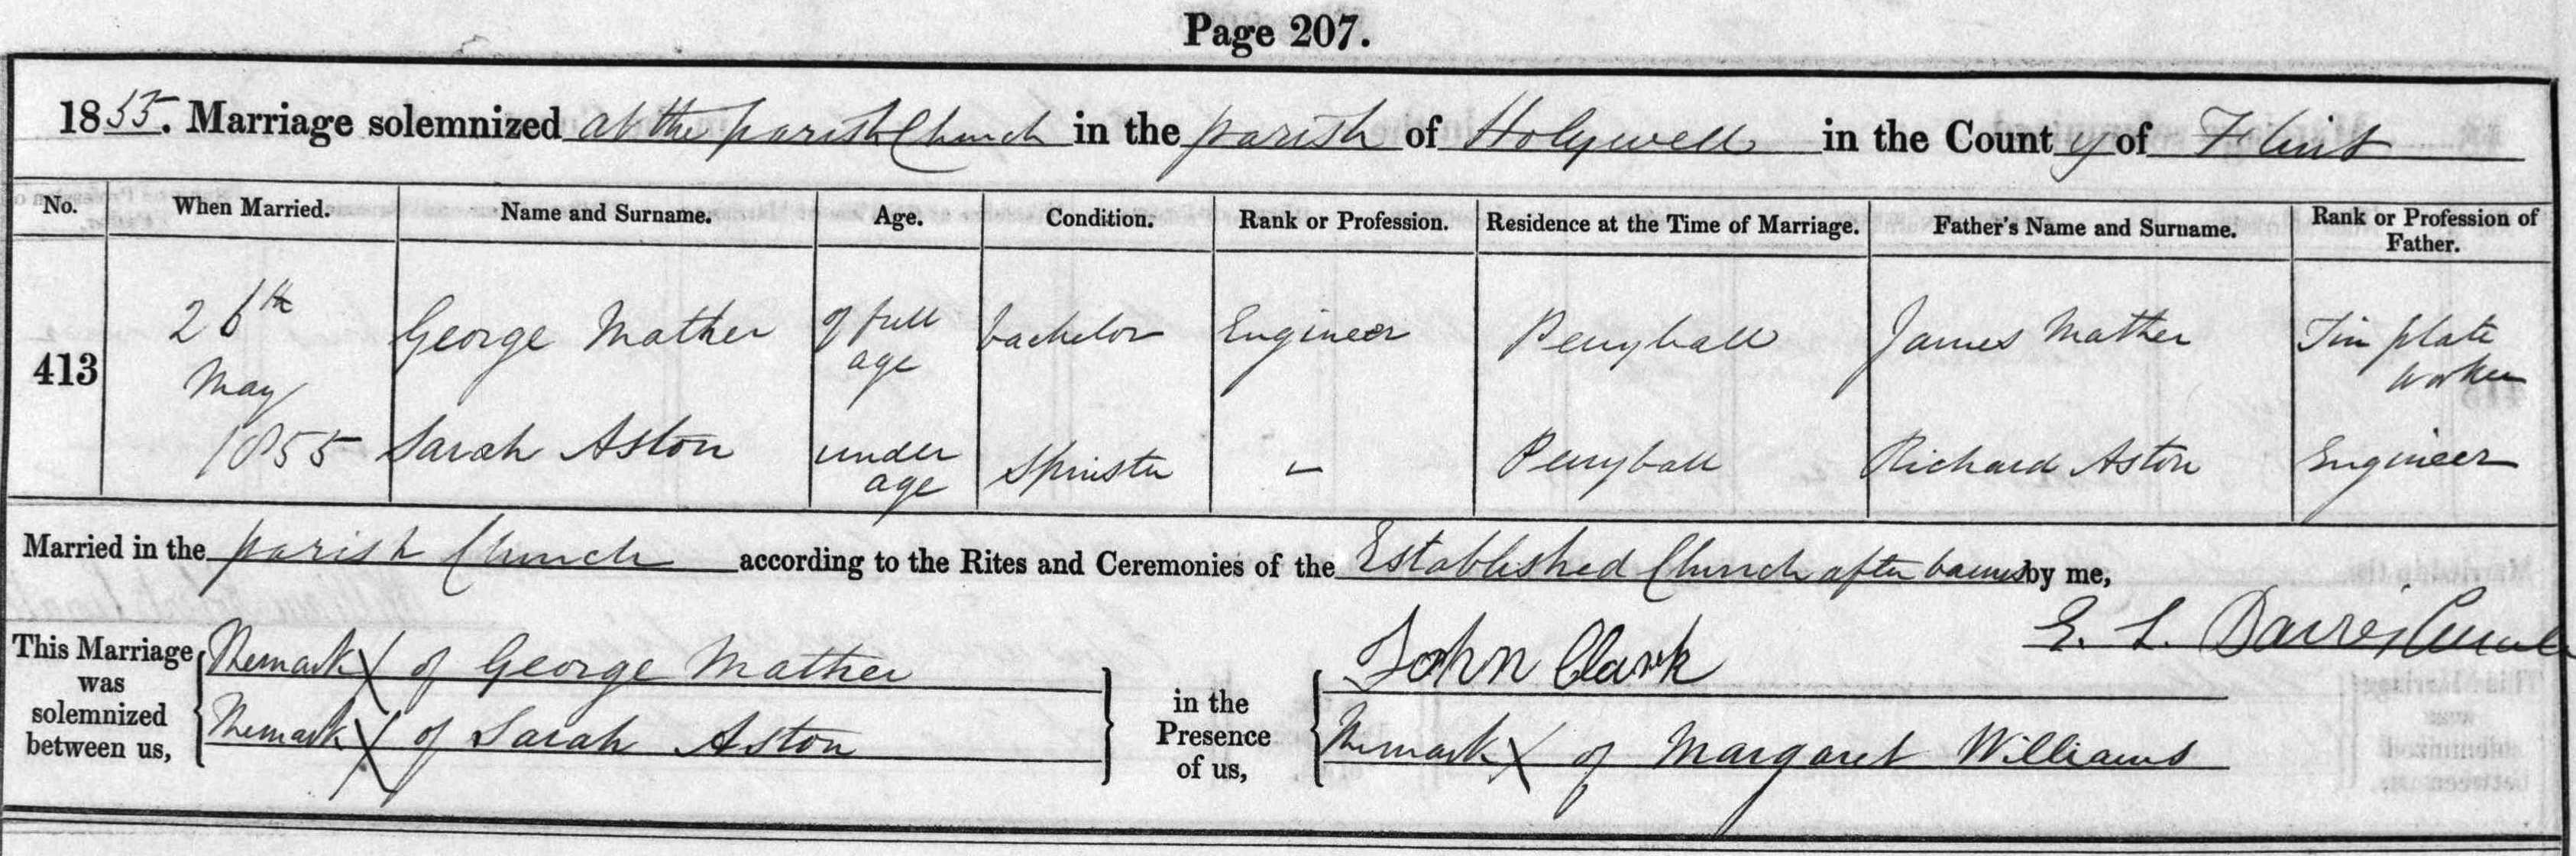 Page 207.
1855. Marriage solemnized at the parish Church in the parish of Holywell in the County of Flint
No. When Married. Name and Surname. Age. Condition. Rank or Profession. Residence at the Time of Marriage. Father's Name and Surname. Rank or Profession of Father.
413 26th May 1855 George Mather of full age bachelor Engineer Penyball James Mather Tin plate worker
Sarah Aston under age Spinster – Penyball Richard Aston Engineer
Married in the parish Church according to the Rites and Ceremonies of the Established Church after banns by me,
E. L. Davies Curate
This Marriage was solemnized between us, The mark X of George Mather in the Presence of us, John Clark
The mark X of Sarah Aston The mark X of Margaret Williams